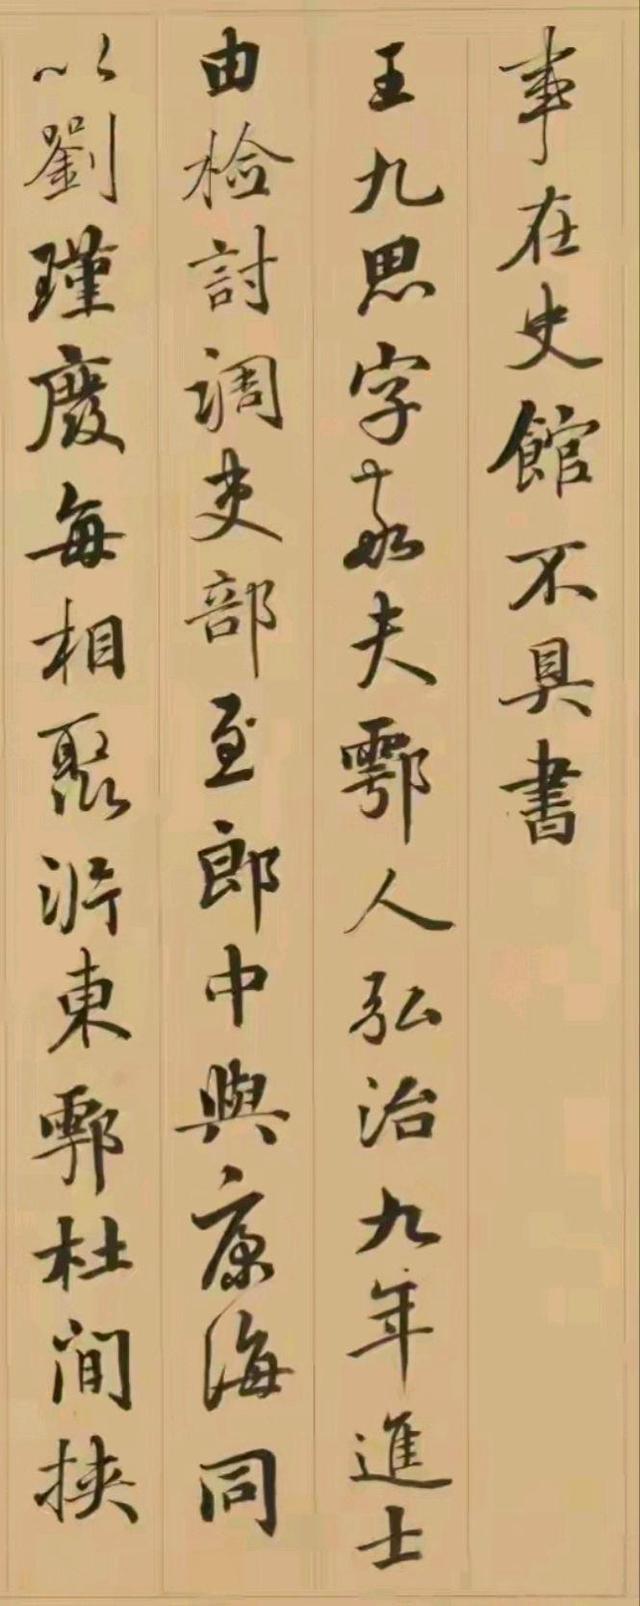 事在史館不具書
王九思字敬夫鄠人弘治九年進士
由檢討調吏部至郎中與康海同
以劉瑾廢每相聚浒東鄠杜間挾